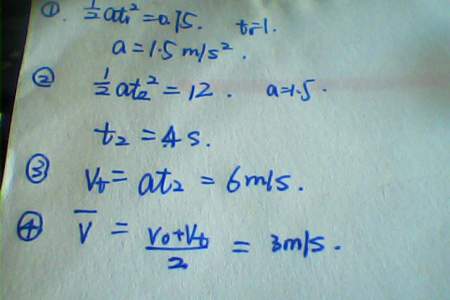 ① ½at₁²=0.75. t₁=1.
a=1.5m/s².
② ½at₂²=12. a=1.5.
t₂=4s.
③ Vt=at₂=6m/s.
④ V̅=(V₀+Vt)/2=3m/s.